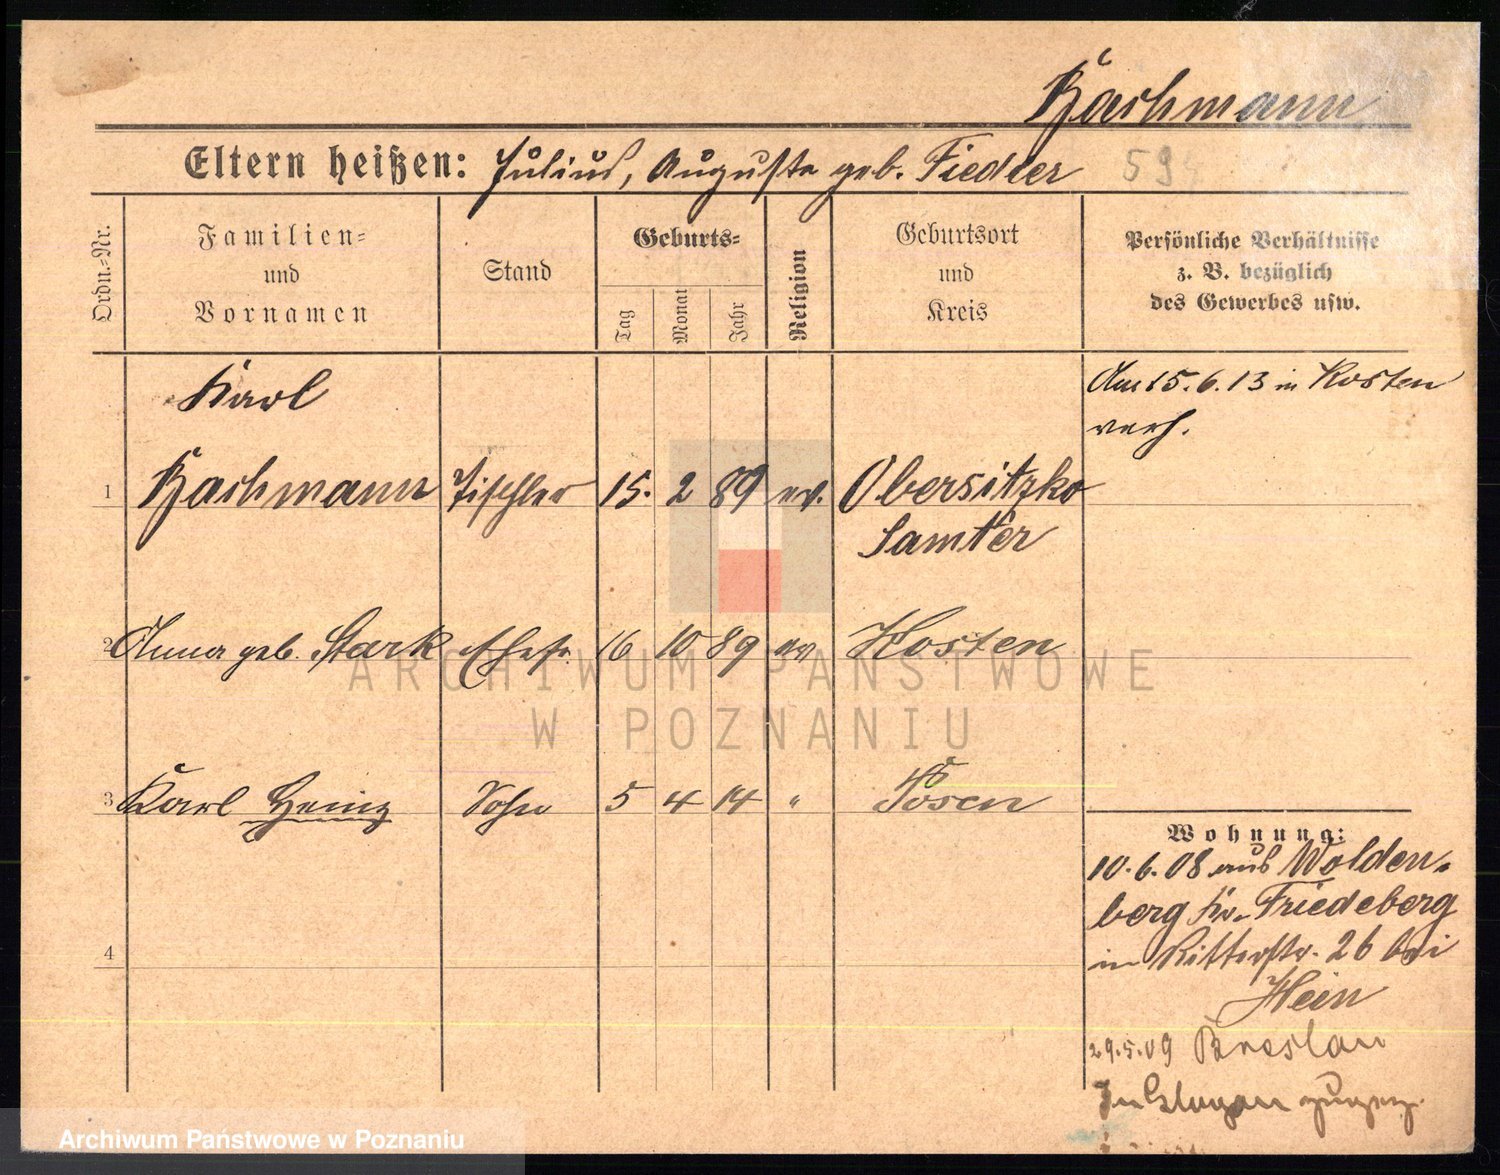 Bachmann
Eltern heißen: Julius, Auguste geb. Fiedler 59
Ordn.=Nr.
Familien=
und
Vornamen
Stand
Geburts=
Tag
Monat
Jahr
Religion
Geburtsort
und
Kreis
Persönliche Verhältnisse
z. B. bezüglich
des Gewerbes usw.
Karl
Am 15.6.13 in Kosten
verh.
1 Bachmann Tischler 15. 2 89 ev. Obersitzko
Samter
2 Anna geb. Stark Ehefr. 16 10 89 ev Kosten
ARCHIWUM PAŃSTWOWE
W POZNANIU
3 Karl Heinz Sohn 5 4 14 " Posen
Wohnung:
10.6.08 aus Wolden-
berg Kr. Friedeberg
in Ritterstr. 26 bei
Hein
4
29.5.09 Breslau
In Glogau zugez.
Archiwum Państwowe w Poznaniu